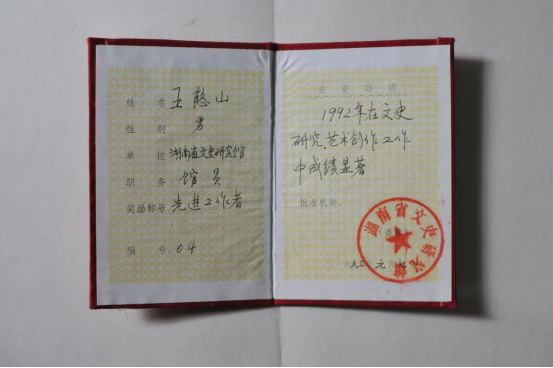 姓名 王憨山
性别 男
单位 湖南省文史研究馆
职务 馆员
奖励称号 先进工作者
编号:04
主要功绩
1992年在文史
研究、艺术创作工作
中成绩显著
批准机关:
湖南省文史研究馆
一九九三 元月